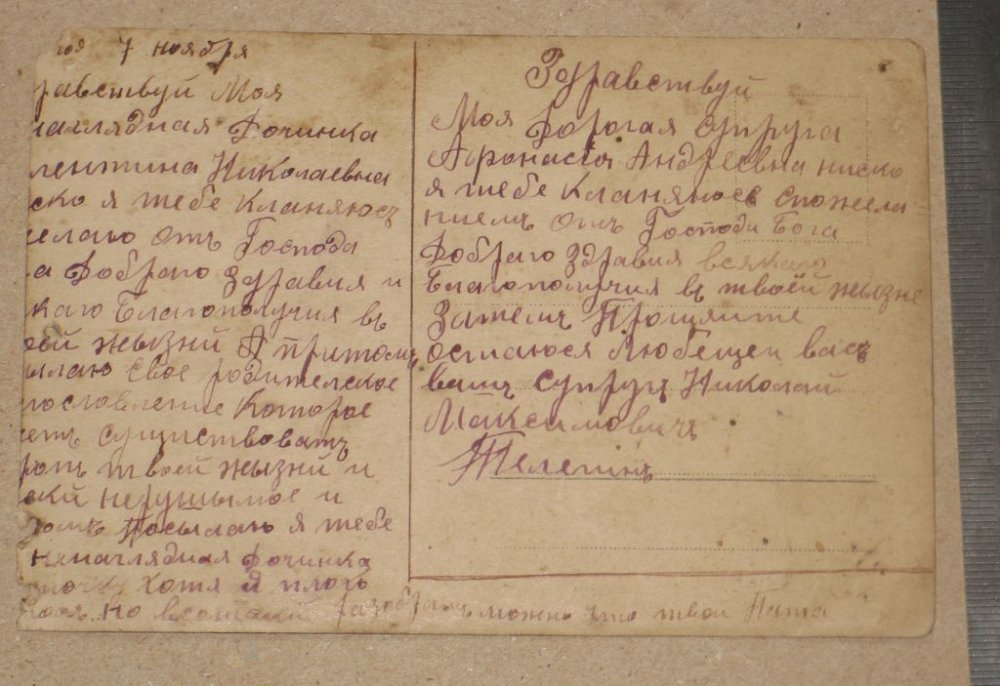 7 ноября
равствуй Моя
наглядная Дочинка
лентина Николаевна
ско я тебе Кланяюсъ
желаю отъ Господа
а Добраго здравия и
каго Благополучия въ
оей жызни А притомъ
ылаю свое родителское
гословление Которое
етъ существоватъ
твоей жызни и
нерушымое и
Посылаю я тебе
ненаглядная Дочинка
хотя я плохо
но всетаки разобратъ можно что твои Папа
Здравствуй
Моя Дорогая супруга
Афонасия Андреевна ниско
я тебе Кланяюсь спожела-
ниемъ отъ Господа Бога
Добраго здравия всякаго
Благополучия въ твоей жызне
Затемъ Прощяйте
остаюся Любещеи васъ
вашъ супругъ Николай
Максимовичъ
Телегинъ